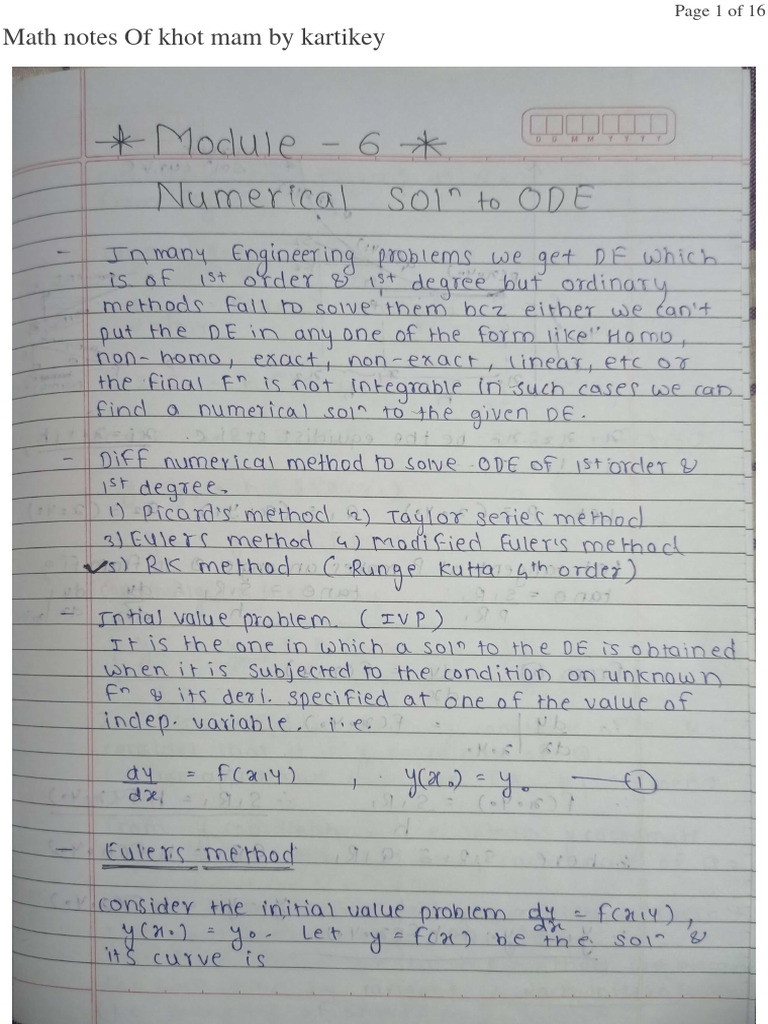 Page 1 of 16
Math notes Of khot mam by kartikey
* Module - 6 *
D D M M Y Y Y Y
Numerical Solⁿ to ODE
- In many Engineering problems we get DE which
is of 1st order & 1st degree but ordinary
methods fall to solve them bcz either we can't
put the DE in any one of the form like" Homo,
non-homo, exact, non-exact, linear, etc or
the final Fⁿ is not integrable in such cases we can
find a numerical solⁿ to the given DE.
- Diff numerical method to solve ODE of 1st order &
1st degree.
1) Picard's method 2) Taylor series method
3) Eulers method 4) modified Euler's method
✓5) RK method ( Runge Kutta 4th order)
- Intial value problem. ( IVP )
It is the one in which a solⁿ to the DE is obtained
when it is subjected to the condition on unknown
Fⁿ & its deri. specified at one of the value of
indep. variable. i.e.
dy/dx = f(x,y) , y(x₀) = y₀ —— ①
- Eulers method
consider the initial value problem dy/dx = f(x,y),
y(x₀) = y₀. Let y = f(x) be the solⁿ &
its curve is